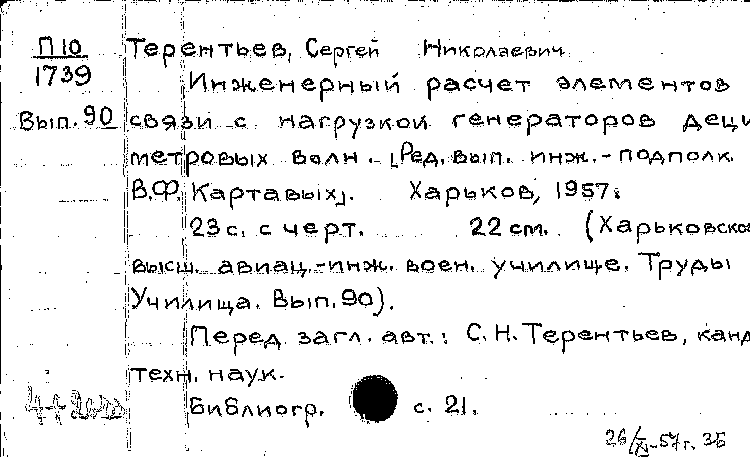 П 10
1739
Вып. 90
Терентьев, Сергей Николаевич
Инженерный расчет элементов
связи с нагрузкой генераторов деци
метровых волн. [Ред. вып. инж.-подполк.
В.Ф. Картавых]. Харьков, 1957.
23 с. с черт. 22 см. (Харьковское
высш. авиац.-инж. воен. училище. Труды
Училища. Вып. 90).
Перед загл. авт.: С. Н. Терентьев, канд
техн. наук.
Библиогр. с. 21.
26/XI-57г. ЗБ